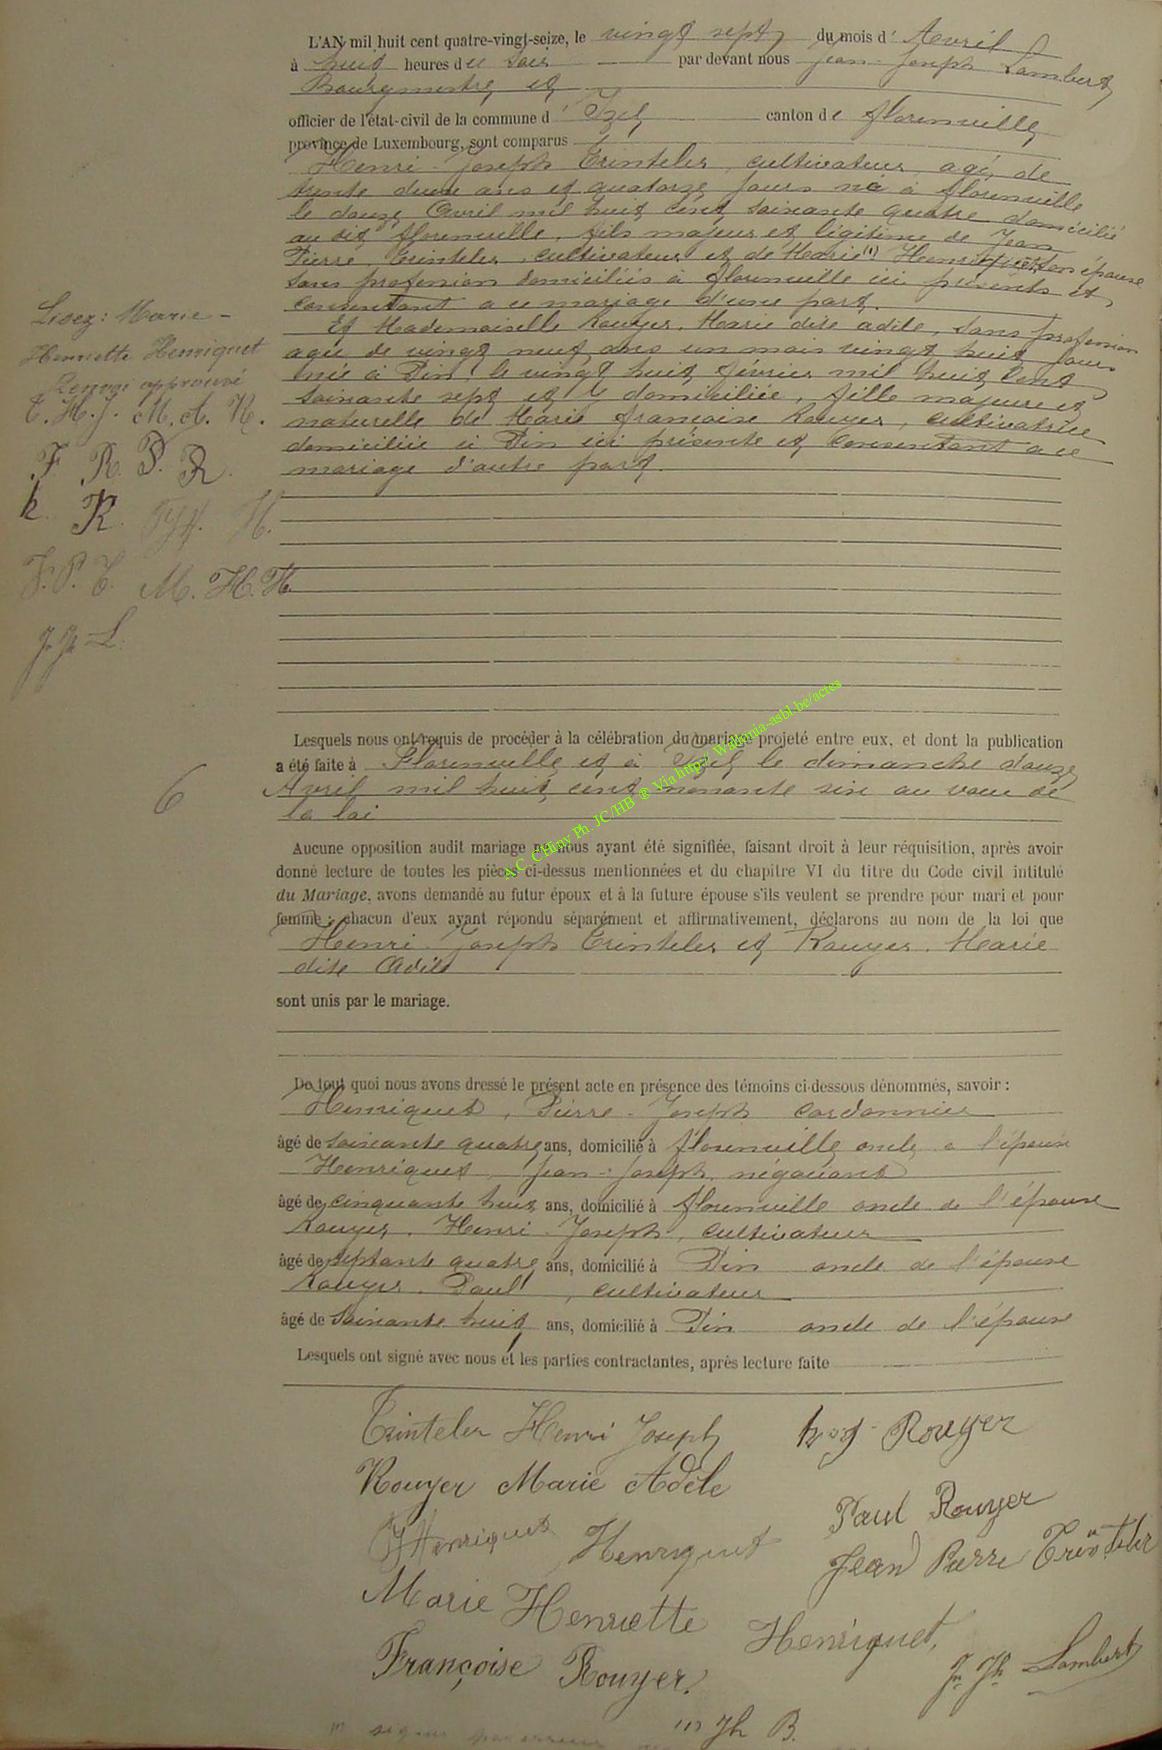 L'AN mil huit cent quatre-vingt-seize, le vingt sept du mois d'Avril
à huit heures du soir par devant nous Jean-Joseph Lambert
Bourgmestre et
officier de l'état-civil de la commune d'Izel canton de florenville
province de Luxembourg, sont comparus
Henri-Joseph Trinteler, cultivateur, agé de
trente deux ans et quatorze jours né à florenville
le douze Avril mil huit cent soixante quatre domicilié
au dit florenville, fils majeur et légitime de Jean
Pierre Trinteler, cultivateur et de Marie (1) Henriquet son épouse
sans profession domiciliés à florenville ici présents et
consentant a ce mariage d'une part.
Et Mademoiselle Rouyer, Marie dite adèle, sans profession
agée de vingt neuf ans un mois vingt huit jours
née à Pin, le vingt huit février mil huit cent
soixante sept et y domiciliée, fille majeure et
naturelle de Marie françoise Rouyer, cultivatrice
domiciliée à Pin ici présente et consentant a ce
mariage d'autre part.
Lisez: Marie-
Henriette Henriquet
Renvoi approuvé
T. H. J. M. A. R.
F R. P. R.
h R. PJH. H.
J. P. T. M. H. H.
J. Jh L.
Lesquels nous ont requis de procéder à la célébration du mariage projeté entre eux, et dont la publication
a été faite à Florenville et à Izel le dimanche douze
Avril mil huit cent nonante six au vœu de
la loi
6
Aucune opposition audit mariage ne nous ayant été signifiée, faisant droit à leur réquisition, après avoir
donné lecture de toutes les pièces ci-dessus mentionnées et du chapitre VI du titre du Code civil intitulé
du Mariage, avons demandé au futur époux et à la future épouse s'ils veulent se prendre pour mari et pour
femme; chacun d'eux ayant répondu séparément et affirmativement, déclarons au nom de la loi que
Henri-Joseph Trinteler et Rouyer, Marie
dite Adèle
sont unis par le mariage.
De tout quoi nous avons dressé le présent acte en présence des témoins ci-dessous dénommés, savoir:
Henriquet, Pierre-Joseph cordonnier
âgé de soixante quatre ans, domicilié à florenville oncle a l'épouse
Henriquet, Jean-Joseph, négociant
âgé de cinquante huit ans, domicilié à florenville oncle de l'épouse
Rouyer, Henri-Joseph, cultivateur
âgé de septante quatre ans, domicilié à Pin oncle de l'épouse
Rouyer, Paul, cultivateur
âgé de soixante huit ans, domicilié à Pin oncle de l'épouse
Lesquels ont signé avec nous et les parties contractantes, après lecture faite
Trinteler Henri Joseph h j Rouyer
Rouyer Marie Adèle
Paul Rouyer
PJHenriquet Henriquet
Jean Pierre Trinteler
Marie Henriette Henriquet.
Françoise Rouyer.
Jn Jh Lambert
(1) Jh B.
A.C. Chiny Ph. JC/HB ® Via http:// Wallonia-asbl.be/actes